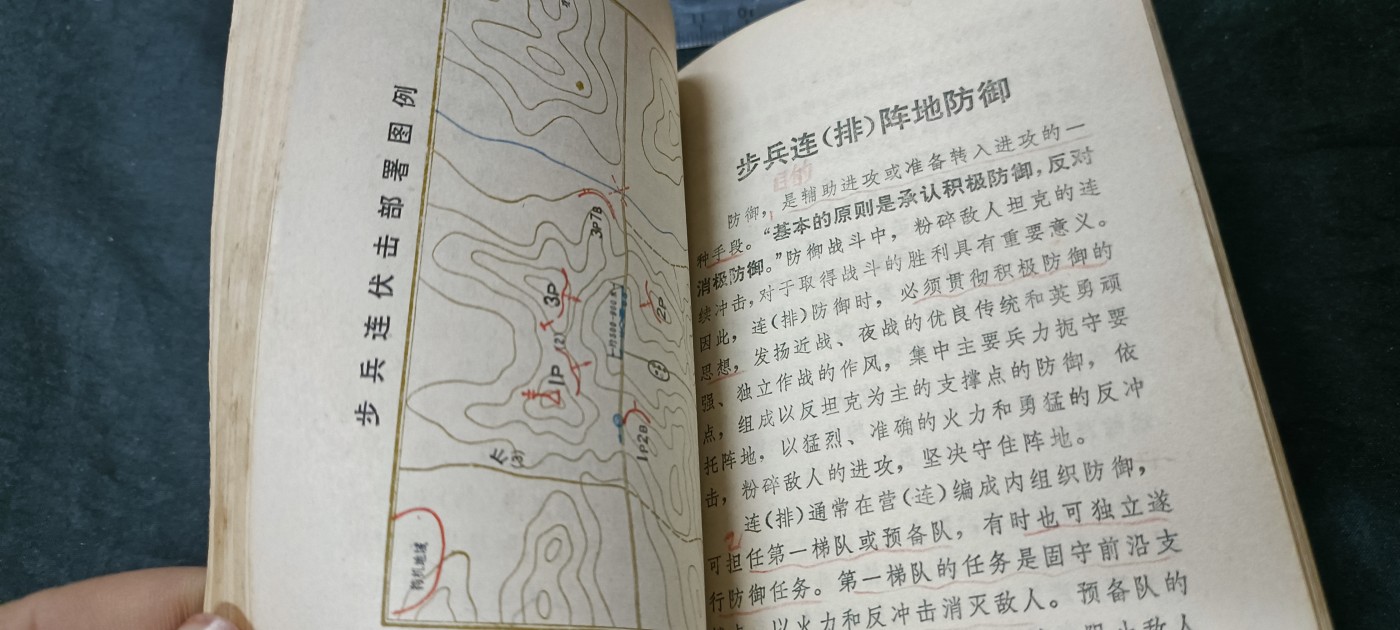 步兵连伏击部署图例
3P7B
3P
2P
1P
(2)
1P2B
(3)
待机地域
步兵连(排)阵地防御
目的
防御，是辅助进攻或准备转入进攻的一
种手段。“基本的原则是承认积极防御，反对
消极防御。”防御战斗中，粉碎敌人坦克的连
续冲击，对于取得战斗的胜利具有重要意义。
因此，连(排)防御时，必须贯彻积极防御的
思想，发扬近战、夜战的优良传统和英勇顽
强、独立作战的作风，集中主要兵力扼守要
点，组成以反坦克为主的支撑点的防御，依
托阵地，以猛烈、准确的火力和勇猛的反冲
击，粉碎敌人的进攻，坚决守住阵地。
连(排)通常在营(连)编成内组织防御，
可担任第一梯队或预备队，有时也可独立遂
行防御任务。第一梯队的任务是固守前沿支
以火力和反冲击消灭敌人。预备队的
敌人